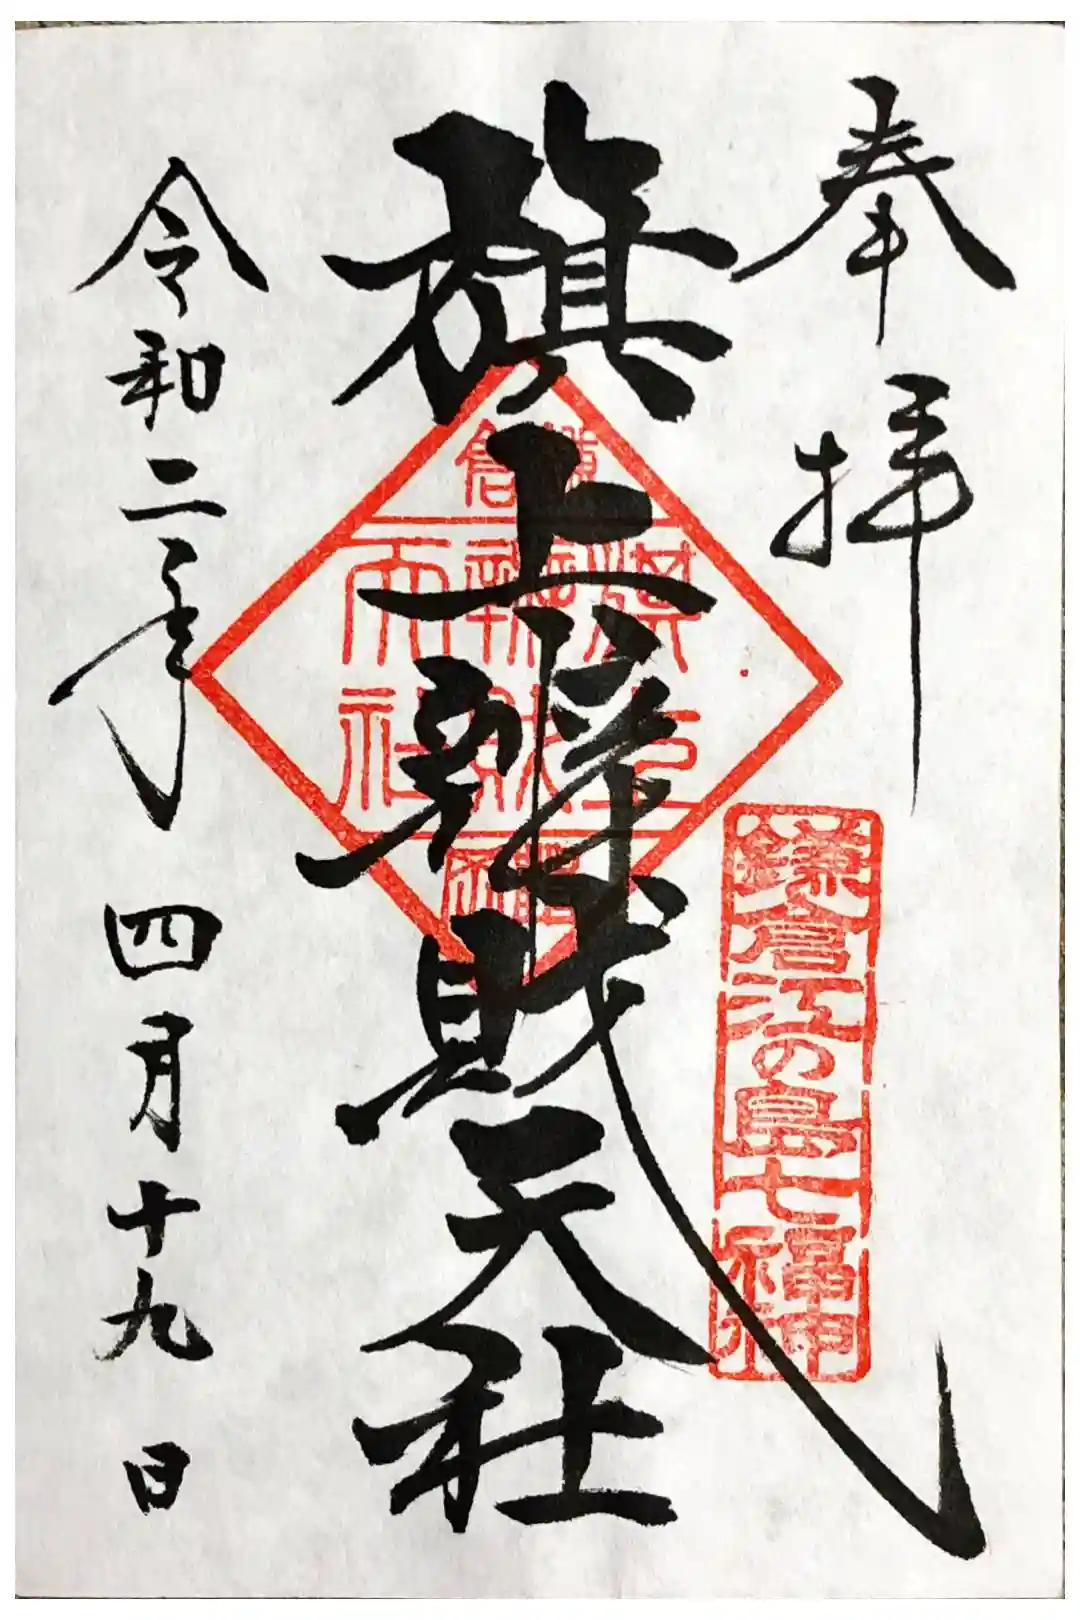 奉拝
鎌倉江の島七福神
旗上辨財天社
令和二年四月十九日